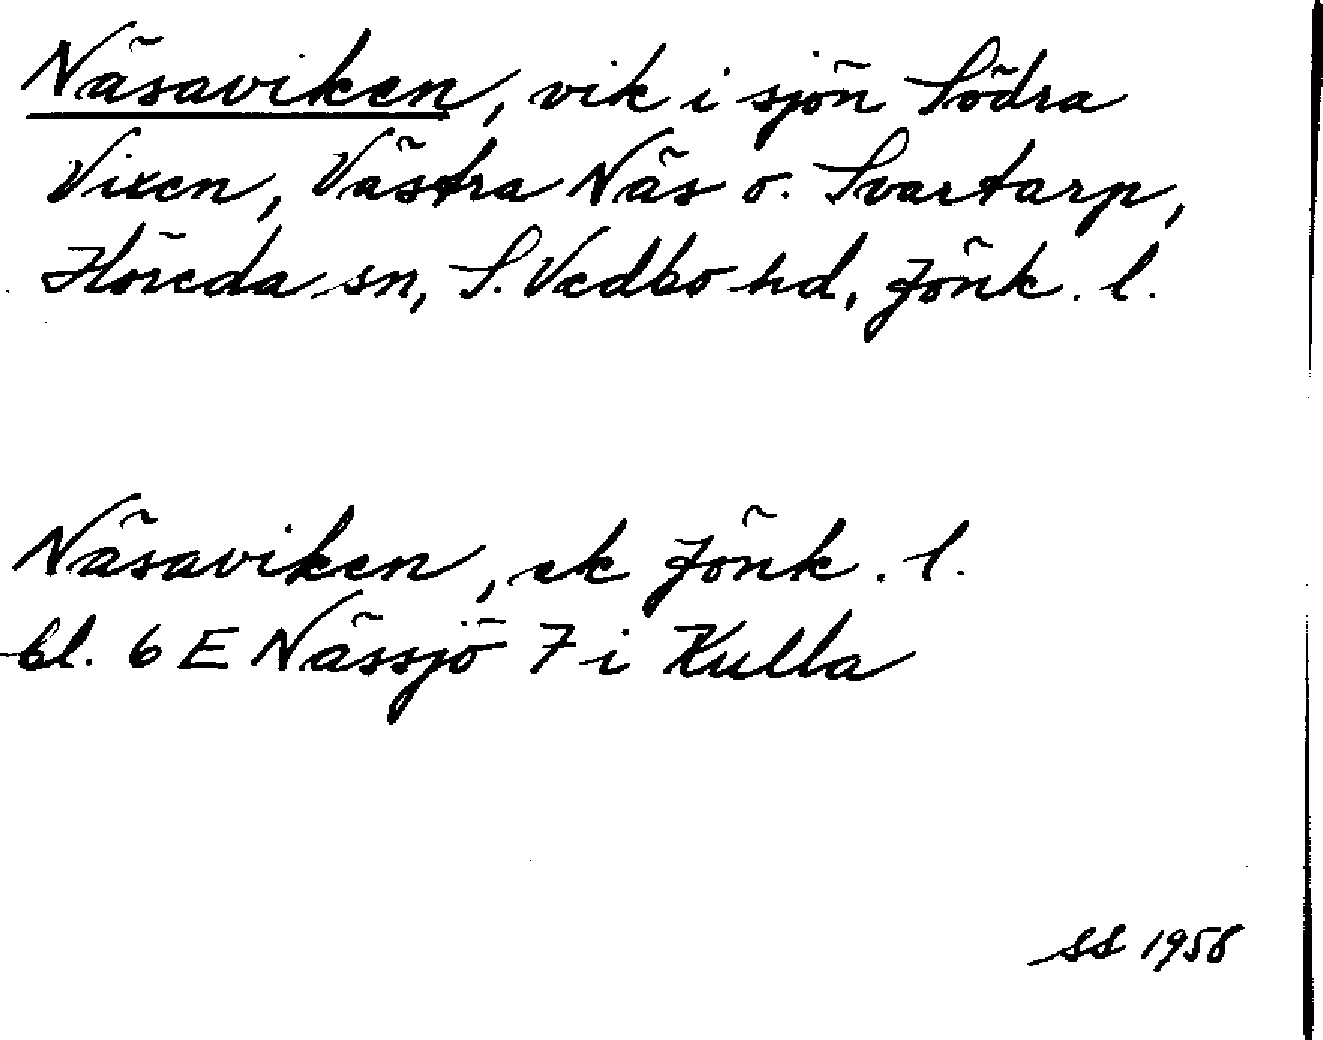 Näsaviken, vik i sjön Södra
Vixen, Västra Näs o. Svartarp,
Höreda sn, S. Vedbo hd, Jönk. l.
Näsaviken, ek Jönk. l.
bl. 6 E Nässjö 7 i Kulla
SS 1958